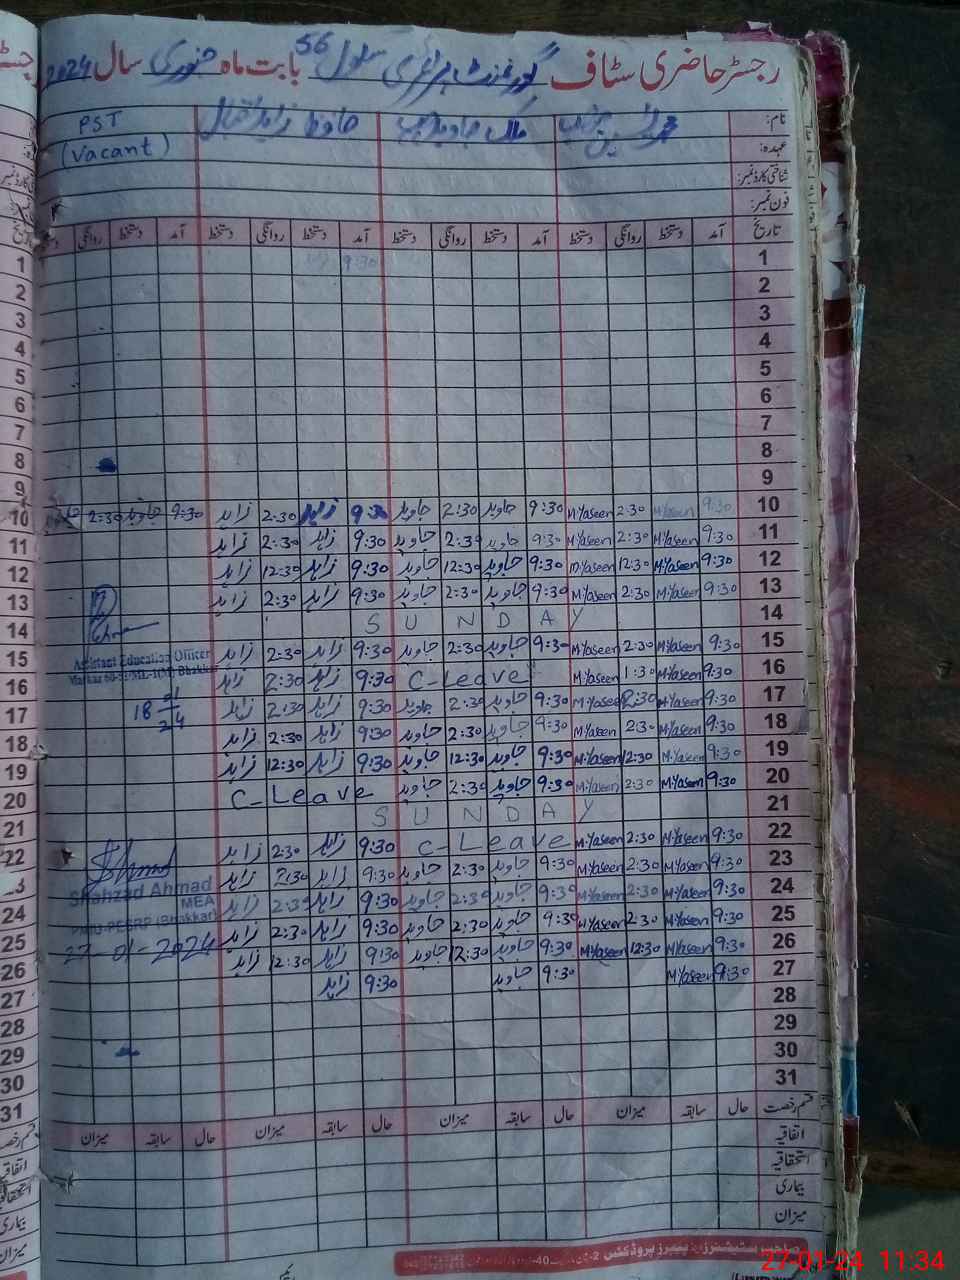 رجسٹر حاضری سٹاف گورنمنٹ پرائمری سکول 56 بابت ماہ جنوری سال 2024
نام: محمد یٰسین ملک جاوید حافظ زاہد اقبال PST
عہدہ: (Vacant)
شناختی کارڈ نمبر:
فون نمبر:
تاریخ آمد دستخط روانگی دستخط آمد دستخط روانگی دستخط آمد دستخط روانگی دستخط آمد دستخط روانگی
1 9:30
2
3
4
5
6
7
8
9
10 9:30 M.Yaseen 2:30 M.Yaseen 9:30 جاوید 2:30 جاوید 9:30 زاہد 2:30 زاہد 9:30 جاوید 2:30 جاوید
11 9:30 M.Yaseen 2:30 M.Yaseen 9:30 جاوید 2:30 جاوید 9:30 زاہد 2:30 زاہد
12 9:30 M.Yaseen 12:30 M.Yaseen 9:30 جاوید 12:30 جاوید 9:30 زاہد 12:30 زاہد
13 9:30 M.Yaseen 2:30 M.Yaseen 9:30 جاوید 2:30 جاوید 9:30 زاہد 2:30 زاہد
14 SUNDAY
15 9:30 M.Yaseen 2:30 M.Yaseen 9:30 جاوید 2:30 جاوید 9:30 زاہد 2:30 زاہد
Assistant Education Officer
16 9:30 M.Yaseen 1:30 M.Yaseen C-Leave 9:30 زاہد 2:30 زاہد
Bhakkar
17 9:30 M.Yaseen 2:30 M.Yaseen 9:30 جاوید 2:30 جاوید 9:30 زاہد 2:30 زاہد
18 01 24
18 9:30 M.Yaseen 2:30 M.Yaseen 9:30 جاوید 2:30 جاوید 9:30 زاہد 2:30 زاہد
19 9:30 M.Yaseen 12:30 M.Yaseen 9:30 جاوید 12:30 جاوید 9:30 زاہد 12:30 زاہد
20 9:30 M.Yaseen 2:30 M.Yaseen 9:30 جاوید 2:30 جاوید C-Leave
21 SUNDAY
22 9:30 M.Yaseen 2:30 M.Yaseen C-Leave 9:30 زاہد 2:30 زاہد
23 9:30 M.Yaseen 2:30 M.Yaseen 9:30 جاوید 2:30 جاوید 9:30 زاہد 2:30 زاہد
Shahzad Ahmad
24 9:30 M.Yaseen 2:30 M.Yaseen 9:30 جاوید 2:30 جاوید 9:30 زاہد 2:30 زاہد
MEA
25 9:30 M.Yaseen 2:30 M.Yaseen 9:30 جاوید 2:30 جاوید 9:30 زاہد 2:30 زاہد
PMIU-PESRP (Bhakkar)
26 9:30 M.Yaseen 12:30 M.Yaseen 9:30 جاوید 12:30 جاوید 9:30 زاہد 12:30 زاہد
27-01-2024
27 9:30 M.Yaseen 9:30 جاوید 9:30 زاہد
28
29
30
31
قسم رخصت حال سابقہ میزان حال سابقہ میزان حال سابقہ میزان حال سابقہ میزان
اتفاقیہ
استحقاقیہ
بیماری
میزان
27-01-24 11:34